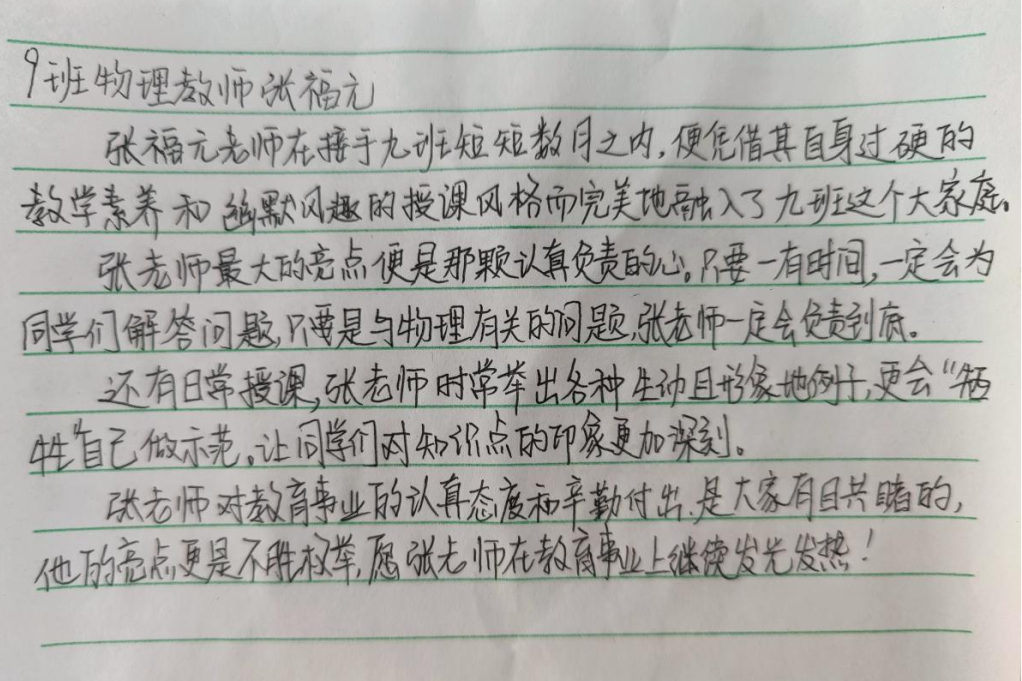 9班物理教师张福元
张福元老师在接手九班短短数月之内,便凭借其自身过硬的
教学素养和幽默风趣的授课风格而完美地融入了九班这个大家庭。
张老师最大的亮点便是那颗认真负责的心。只要一有时间,一定会为
同学们解答问题,只要是与物理有关的问题,张老师一定会负责到底。
还有日常授课,张老师时常举出各种生动且形象地例子,更会“牺
牲”自己做示范。让同学们对知识点的印象更加深刻。
张老师对教育事业的认真态度和辛勤付出.是大家有目共睹的,
他的亮点更是不胜枚举,愿张老师在教育事业上继续发光发热!